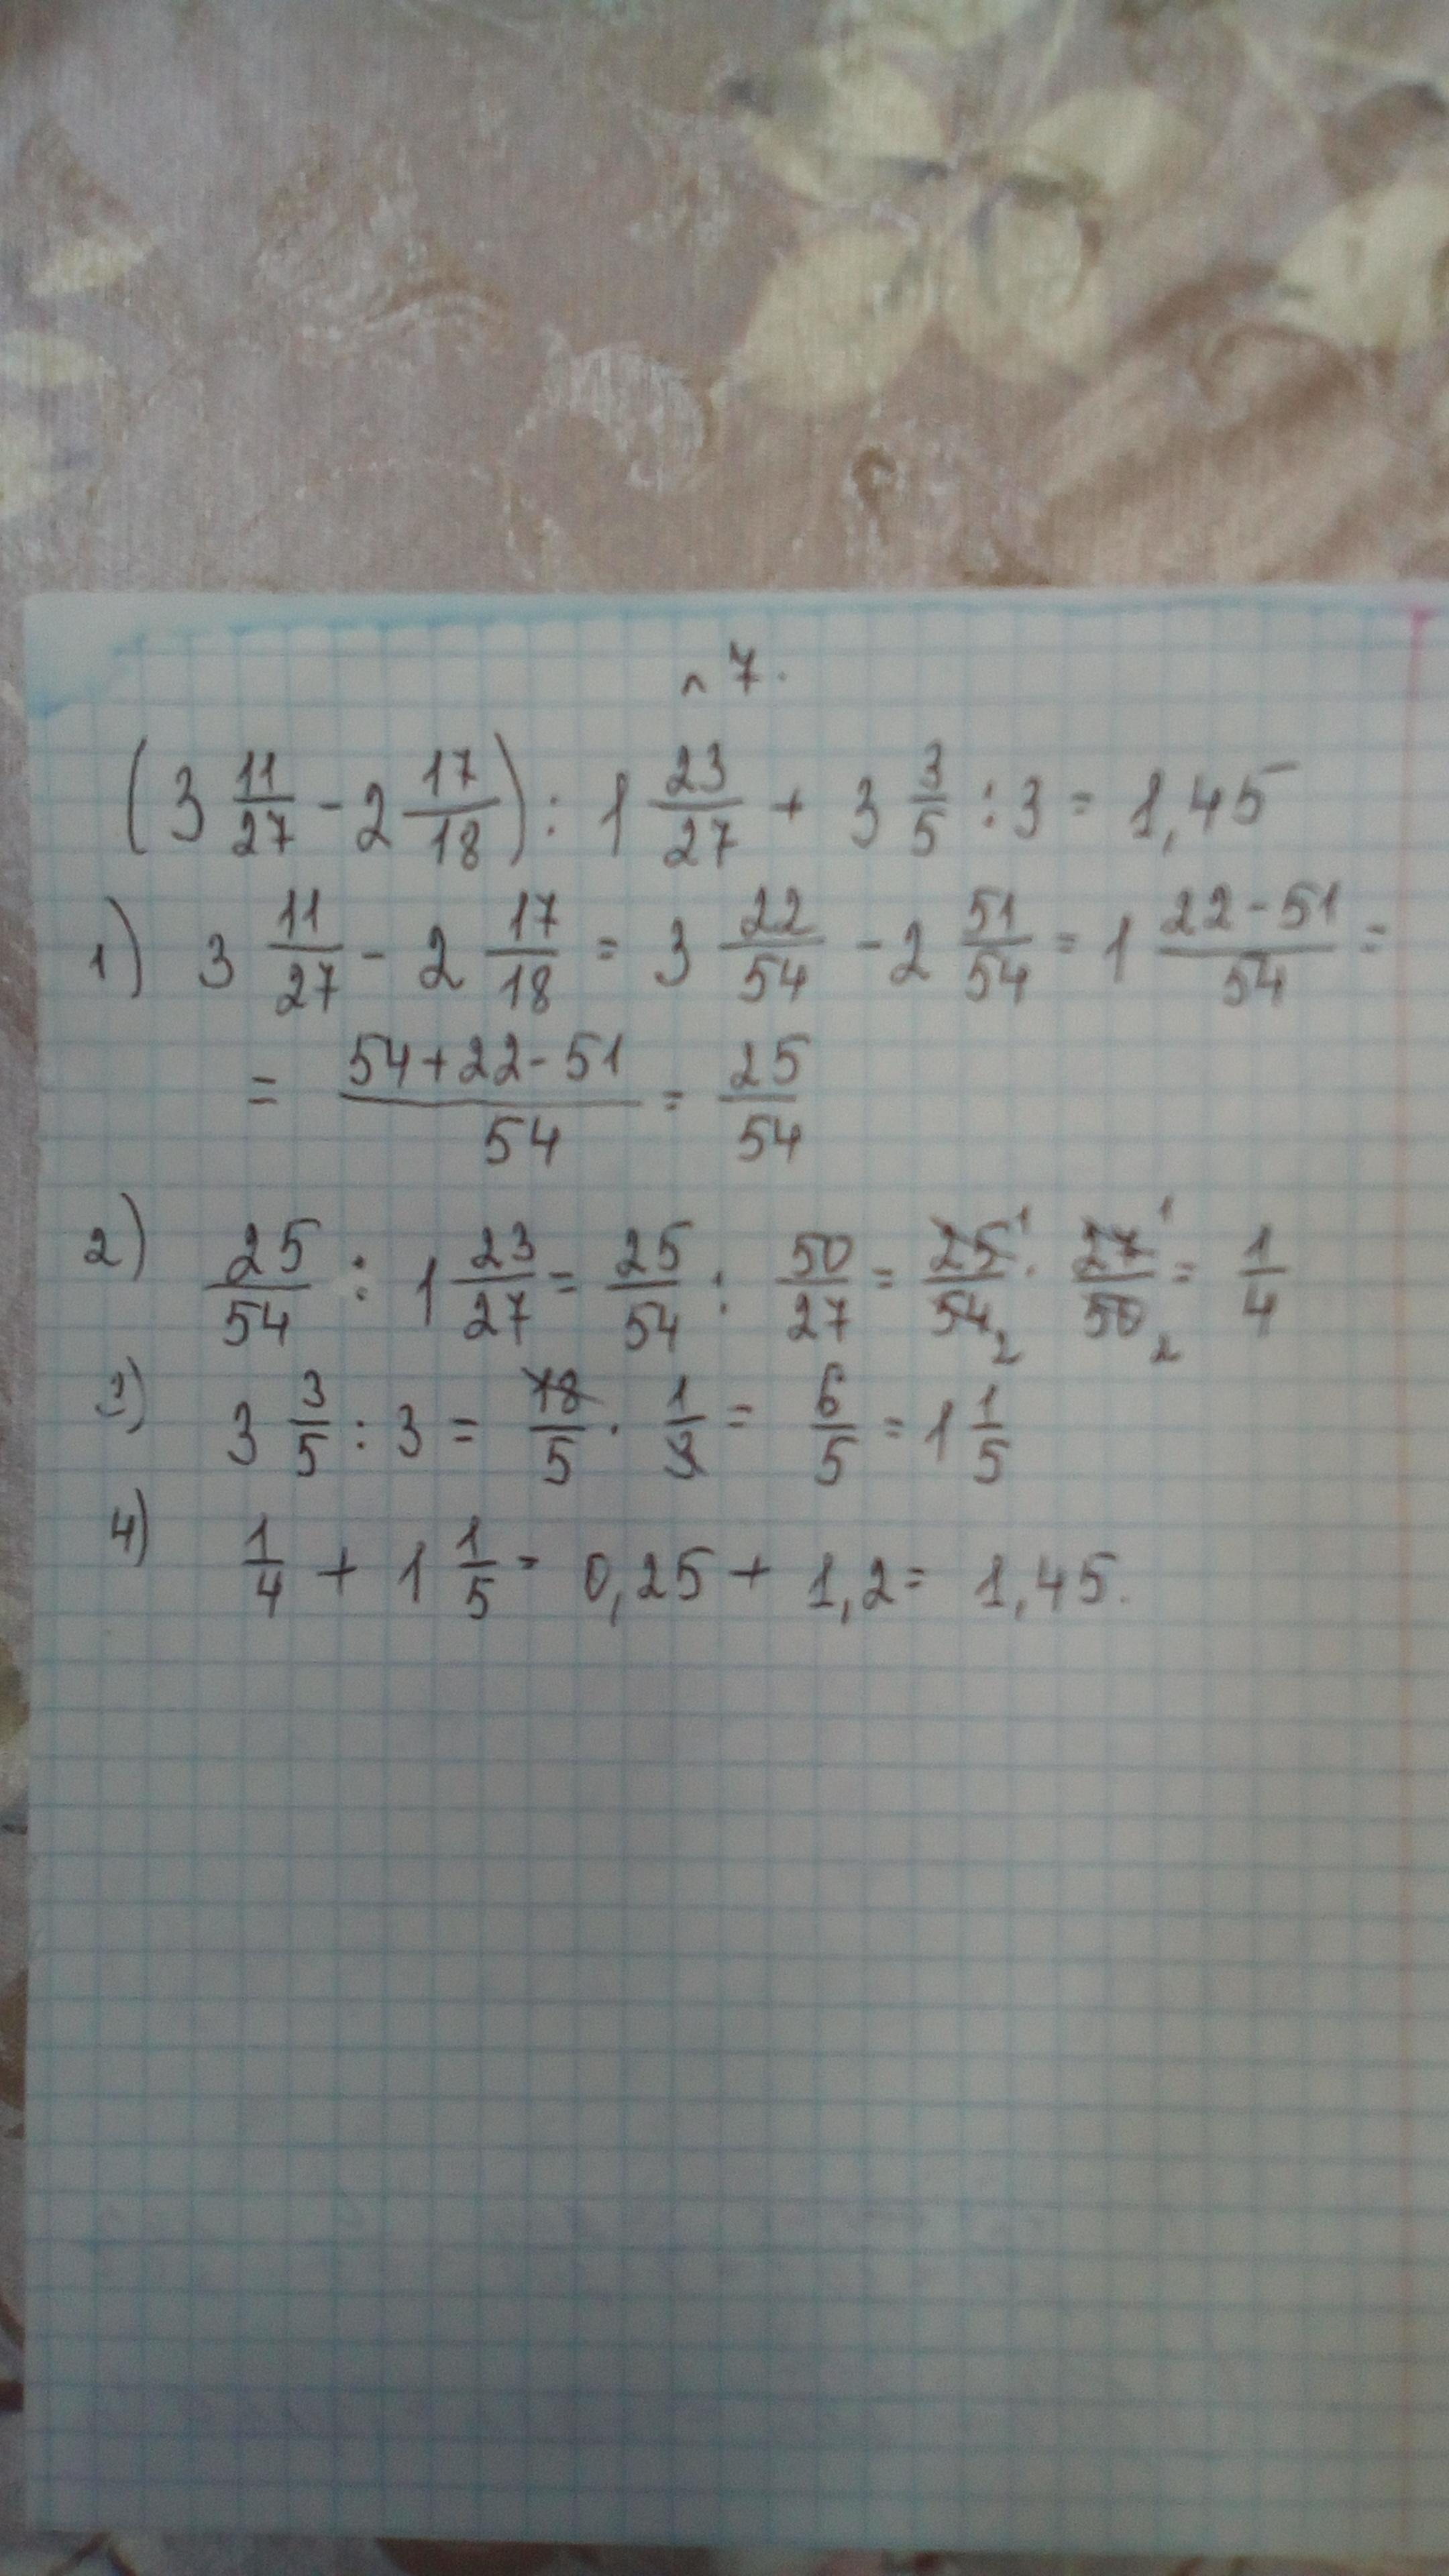 n 7.
(3 11/27 - 2 17/18) : 1 23/27 + 3 3/5 : 3 = 1,45
1) 3 11/27 - 2 17/18 = 3 22/54 - 2 51/54 = 1 22-51/54 =
= 54+22-51/54 = 25/54
2) 25/54 : 1 23/27 = 25/54 : 50/27 = 25 1/54 2 · 27 1/50 2 = 1/4
3) 3 3/5 : 3 = 18/5 · 1/3 = 6/5 = 1 1/5
4) 1/4 + 1 1/5 = 0,25 + 1,2 = 1,45.